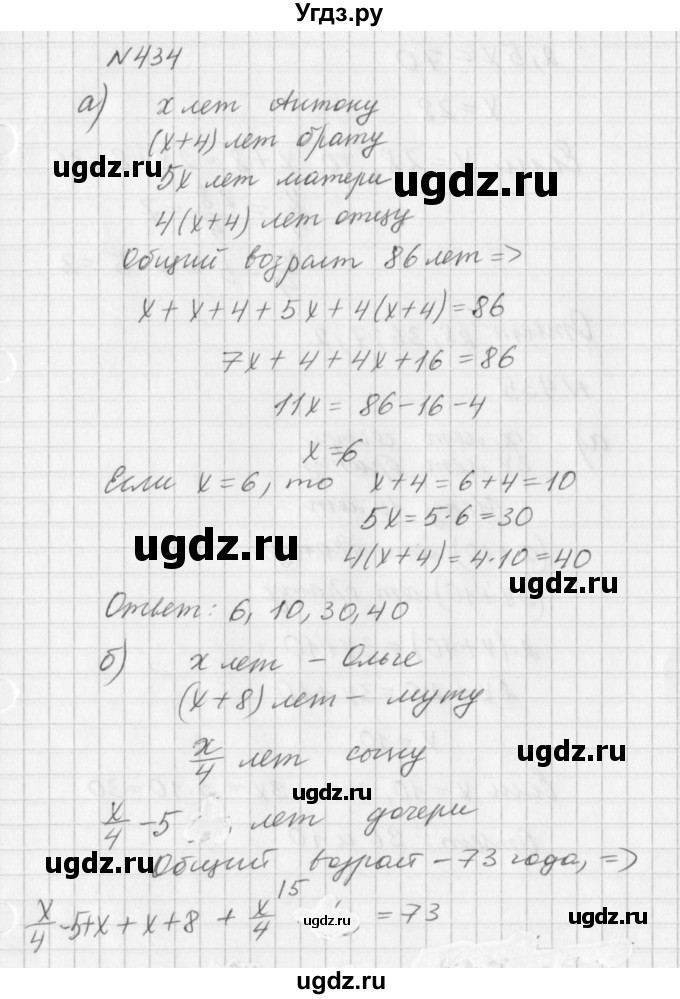 Угдз.ру
№434
а) x лет Антону
(x+4) лет брату
5x лет матери
4(x+4) лет отцу
Общий возраст 86 лет =>
x + x + 4 + 5x + 4(x+4) = 86
7x + 4 + 4x + 16 = 86
11x = 86 - 16 - 4
x = 6
Если x = 6, то x + 4 = 6 + 4 = 10
5x = 5·6 = 30
4(x+4) = 4·10 = 40
Ответ: 6, 10, 30, 40
б) x лет - Ольге
(x+8) лет - мужу
x/4 лет сыну
x/4 - 5 лет дочери
Общий возраст - 73 года, =>
x/4 - 5 + x + x + 8 + x/4 15 = 73
ugdz.ru
ugdz.ru
ugdz.ru
ugdz.ru
ugdz.ru
ugdz.ru
ugdz.ru
ugdz.ru
ugdz.ru
ugdz.ru